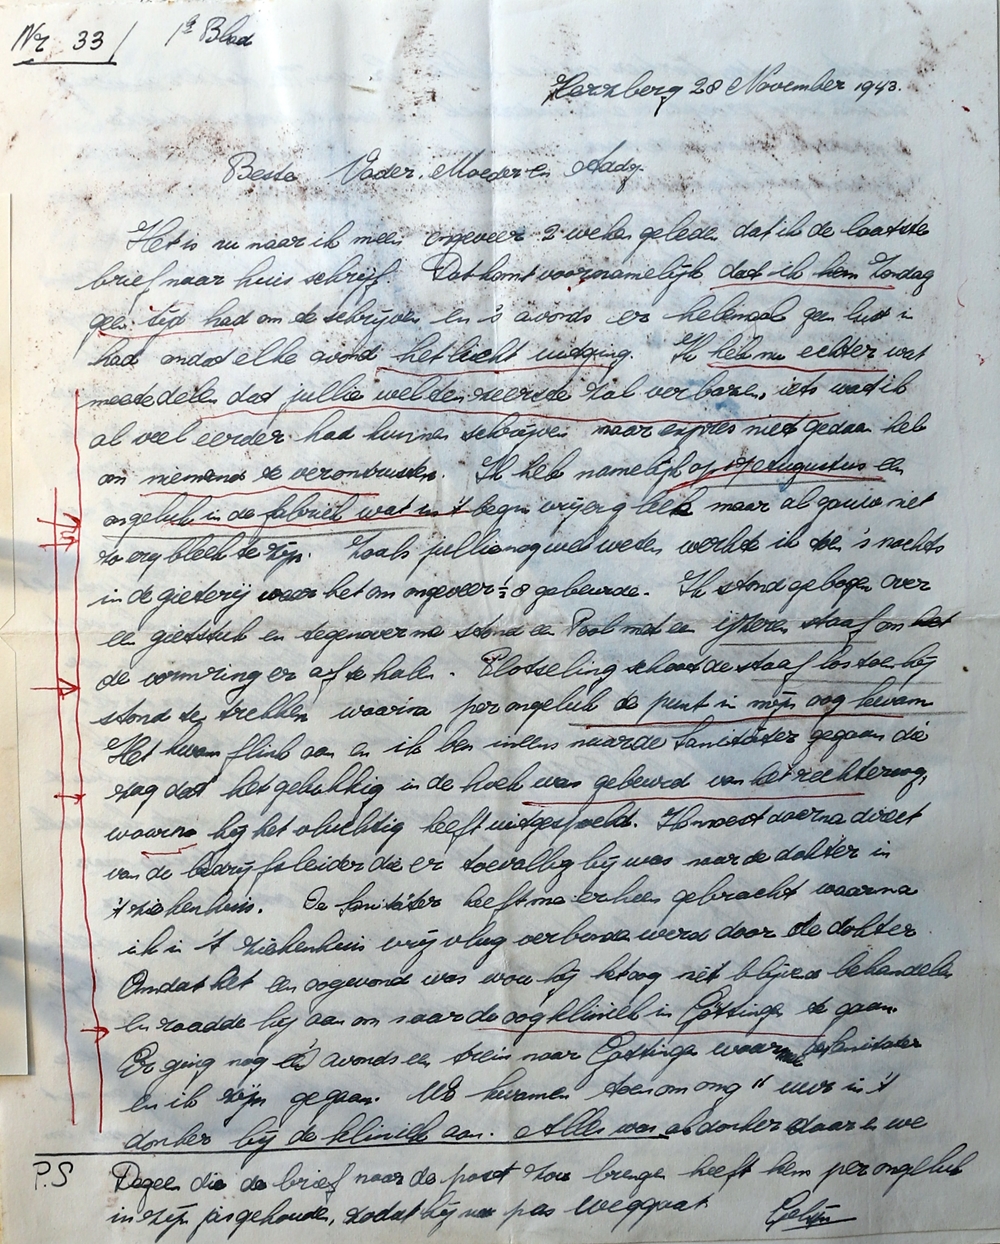 Nr 33 / 1e Blad
Herzberg 28 November 1943.
Beste Vader, Moeder en Aady.
Het is nu naar ik meen ongeveer 2 weken geleden dat ik de laatste
brief naar huis schrijf. Dat komt voornamelijk dat ik hem Zondag
geen tijd had om te schrijven en 's avonds er helemaal geen lust in
had omdat elke avond het licht uitging. Ik heb nu echter wat
meetedelen dat jullie wel ten zeerste zal verbazen, iets wat ik
al veel eerder had kunnen schrijven maar expres niet gedaan heb
om niemand te verontrusten. Ik heb namelijk op 17 Augustus een
ongeluk in de fabriek wat in 't begin vrij erg leek maar al gauw niet
zo erg bleek te zijn. Zoals jullie nog wel weten werkte ik toen 's nachts
in de gieterij waar het om ongeveer ½ 8 gebeurde. Ik stond gebogen over
een gietstuk en tegenover me stond een Pool met een ijzeren staaf om het
de vormring er af te halen. Plotseling schoot de staaf los toen hij
stond te trekken waarna per ongeluk de punt in mijn oog kwam
Het kwam flink aan en ik ben ineens naar de Sanitäter gegaan die
zag dat het gelukkig in de hoek was gebeurd van het rechteroog,
waarna hij het vluchtig heeft uitgespoeld. Ik moest daarna direct
van de bedrijfsleider die er toevallig bij was naar de dokter in
't ziekenhuis. De Sanitäter heeft me erheen gebracht waarna
ik in 't ziekenhuis vrij vlug verbonden werd door de dokter.
Omdat het een oogwond was wou hij het oog niet blijven behandelen
en raadde hij aan om naar de oogkliniek in Göttingen te gaan.
Er ging nog 's avonds een trein naar Göttingen waar de Sanitäter
en ik zijn gegaan. We kwamen toen om ong 11 uur in 't
donker bij de kliniek aan. Alles was donker daar en we
P.S Degeen die de brief naar de post zou brengen heeft hem per ongeluk
in zijn jas gehouden, zodat hij nu pas weggaat.